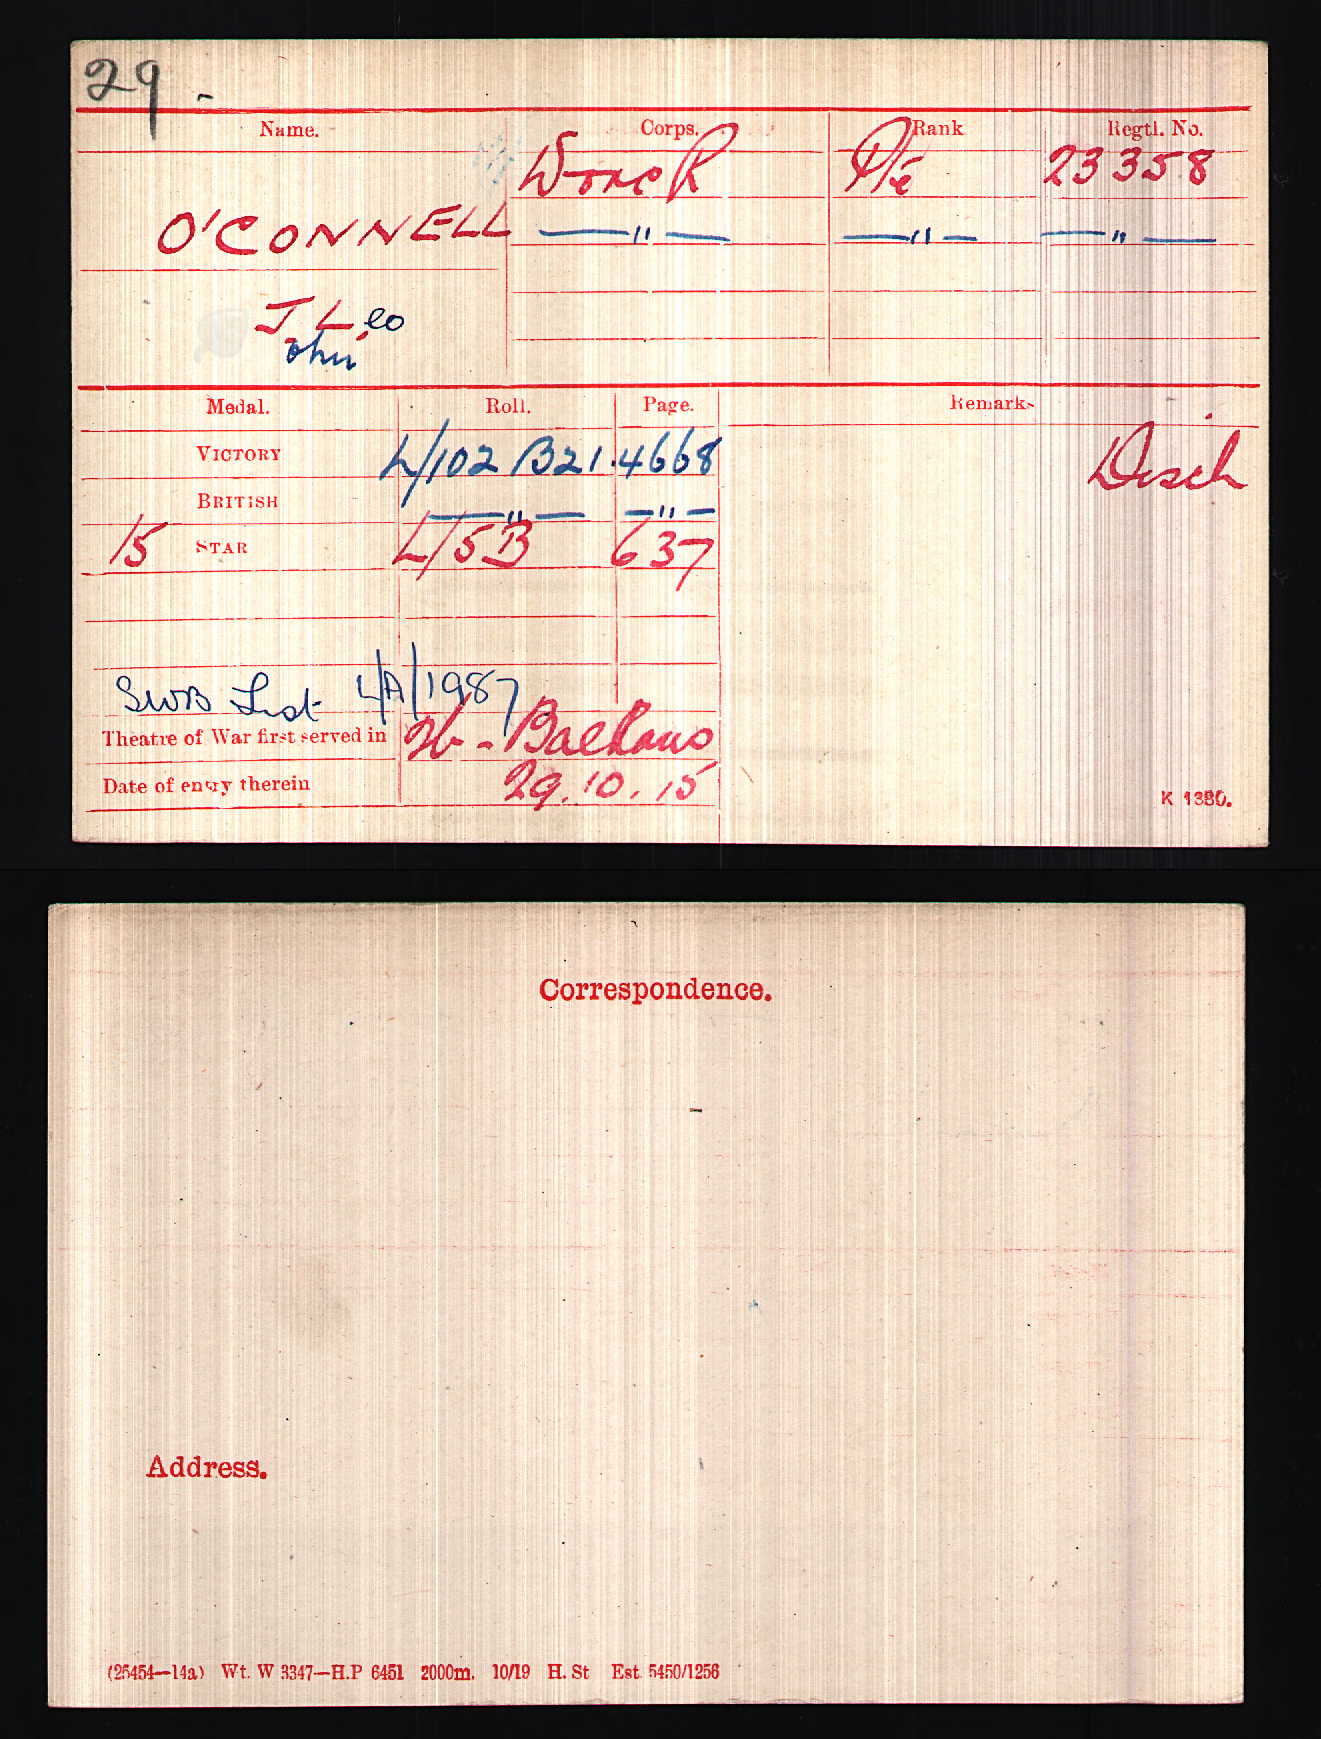 29 -
Name. Corps. Rank Regtl. No.
Worc R Pte 23358
O'CONNELL —"— —"— —"—
J. Leo
ohn
Medal. Roll. Page. Remarks
VICTORY L/102 B21 4668 Disch
BRITISH —"— —"—
15 STAR L/5B 637
SWB List L/A/1987
Theatre of War first served in 2b - Balkans
Date of entry therein 29.10.15
K 1380.
Correspondence.
Address.
(25454—14a) Wt. W 3347—H.P 6451 2000m. 10/19 H. St Est. 5450/1256